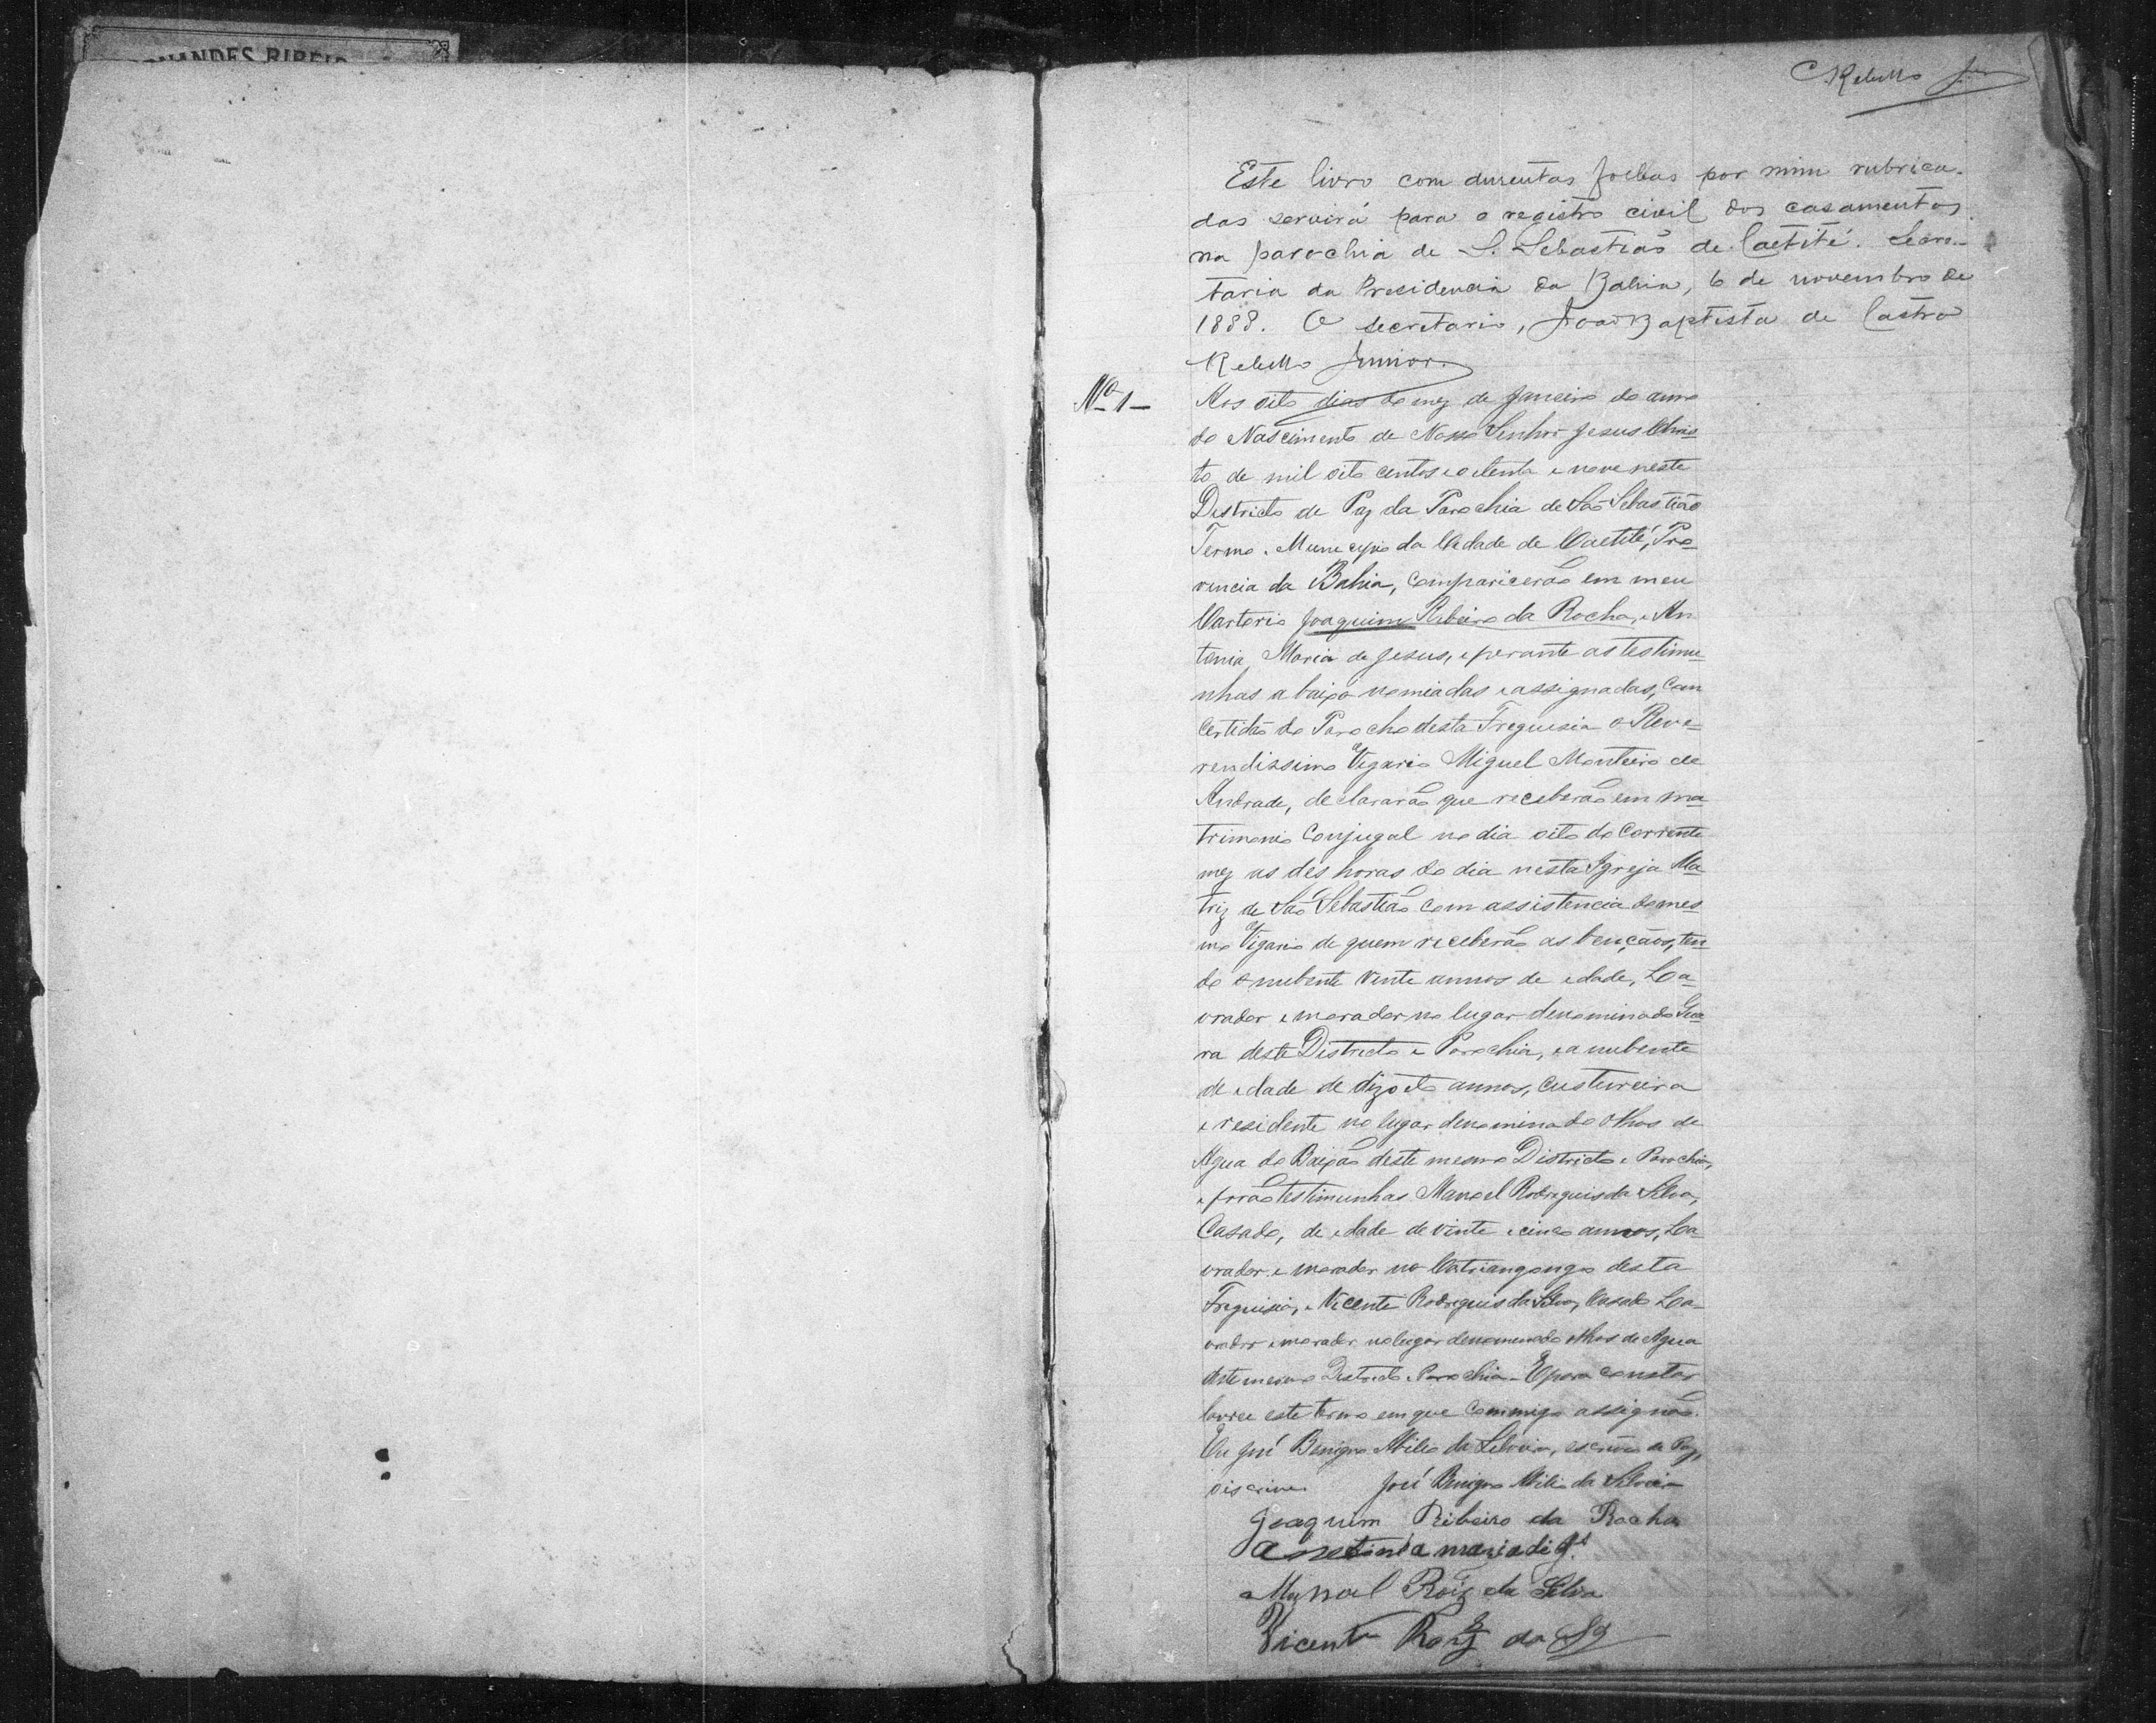 C Rebello Jun
Este livro com duzentas folhas por mim rubrica-
das servirá para o registro civil dos casamentos
na parochia de S. Sebastião de Caetité. Secre-
taria da Presidencia da Bahia, 6 de novembro de
1888. O secretario, João Baptista de Castro
Rebello Junior.
Nº 1 — Aos oito dias do mez de Janeiro do anno
do Nascimento de Nosso Senhor Jesus Chris-
to de mil oito centos e oitenta e nove neste
Districto de Paz da Parochia de São Sebastião
Termo e Municipio da Cidade de Caetité, Pro-
vincia da Bahia, comparicerão em meu
Cartorio Joaquim Ribeiro da Rocha, e An
tonia Maria de Jesus, e perante as testimu-
nhas a baixo nomiadas e assignadas, com
Certidão do Parocho desta Freguesia o Reve-
rendissimo Vigario Miguel Monteiro de
Andrade, declararão que receberão em ma
trimonio Conjugal no dia oito do Corrente
mez as des horas do dia nesta Igreja Ma
triz de São Sebastião com assistencia do mes
mo Vigario de quem receberão as bençãos, ten
do o nubente vinte annos de idade, La-
vrador e morador no lugar denominado
ra deste Districto e Parochia, e a nubente
de idade de dizoito annos, Custureira
e residente no lugar denominado Olhos de
Agua do Baixão deste mesmo Districto e Parochia,
e forão testimunhas Manoel Rodrigues da Silva,
Casado, de idade de vinte e cinco annos, La
vrador e morador no desta
Freguisia, e Vicente Rodrigues da Silva, Casado La-
vrador e morador no lugar denominado Olhos de Agua
deste mesmo Districto e Parochia. E para constar
lavrei este termo em que commigo assignão.
Eu José Benigno Abilio da Silveira, escrivão de Paz,
o iscrivi. José Benigno Abilio da Silveira
Joaquim Ribeiro da Rocha
Anetonia maria di Js
Manoel Roiz da Silva
Vicente Roiz da Sª